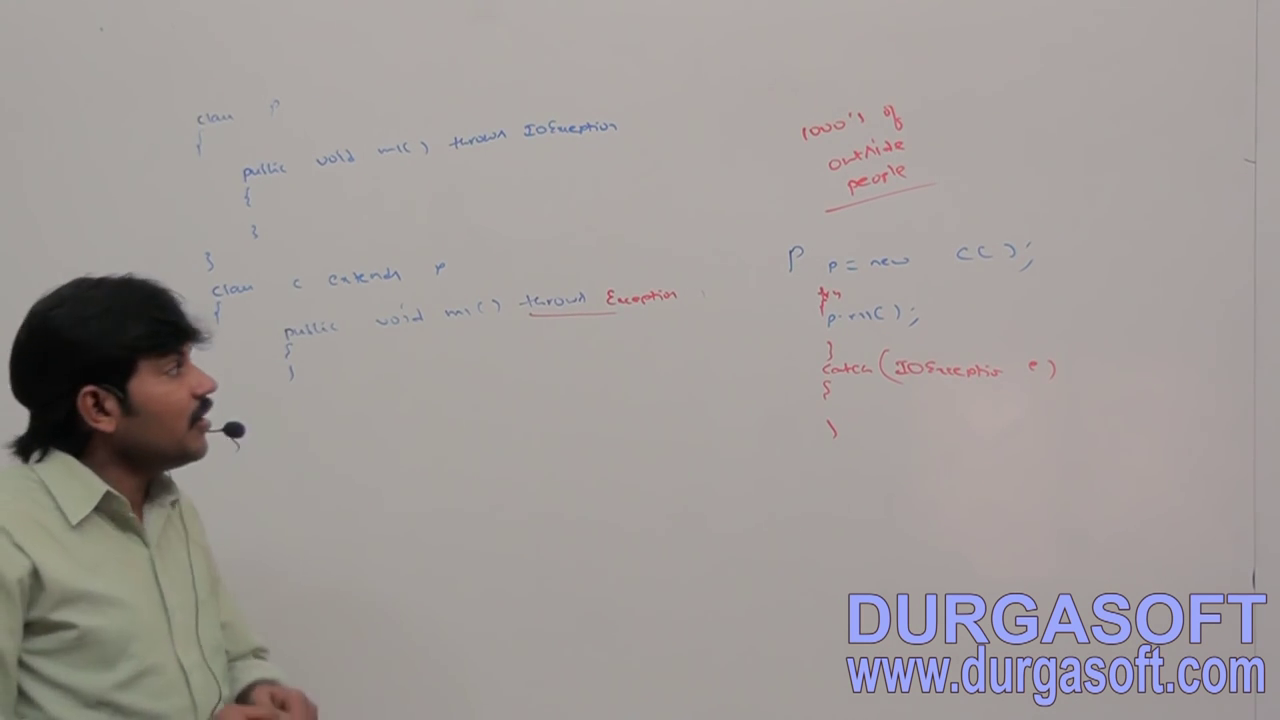 class P
{
public void m1() throws IOException
{
}
}
class C extends P
{
public void m1() throws Exception
{
}
1000's of
outside
people
P p = new C();
try
{
p.m1();
}
catch(IOException e)
{
}
DURGASOFT
www.durgasoft.com